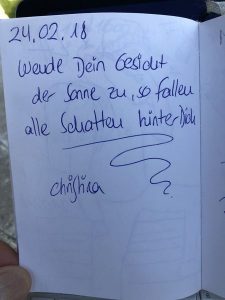 24.02.18
Wende Dein Gesicht
der Sonne zu, so fallen
alle Schatten hinter Dich
Christina